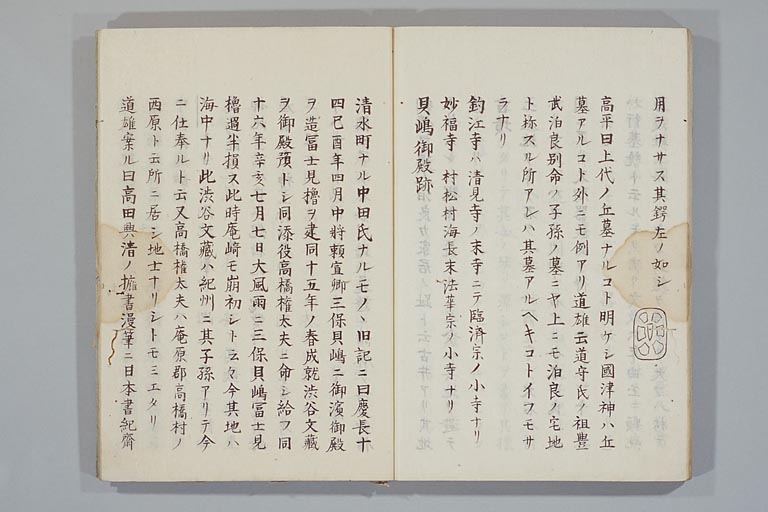 用ヲナサス其鍔左ノ如シ
高平曰上代ノ丘墓ナルコト明ケシ國津神ハ丘
墓アルコト外ニモ例アリ道雄云道守氏ノ祖豊
武泊良別命ノ子孫ノ墓ニヤ上ニモ泊良ノ宅地
ト称スル所アレハ其墓アルヘキコトイフモサ
ラナリ
釣江寺ハ清見寺ノ末寺ニテ臨済宗ノ小寺ナリ
妙福寺ハ村松村海長末法華宗ノ小寺ナリ
貝嶋御殿跡
清水町ナル中田氏ナルモノヽ旧記ニ曰慶長十
四己酉年四月中將頼宣卿三保貝嶋ニ御濱御殿
ヲ造冨士見櫓ヲ建同十五年ノ春成就渋谷文蔵
ヲ御殿預トシ同添役高橋権太夫ニ命シ給フ同
十六年辛亥七月七日大風雨ニ三保貝嶋冨士見
櫓過半損ス此時庵﨑モ崩初シト云々今其地ハ
海中ナリ此渋谷文藏ハ紀州ニ其子孫アリテ今
ニ仕奉ルト云又高橋権太夫ハ庵原郡高橋村ノ
西原ト云所ニ居シ地士ナリシトモミエタリ
道雄案ル曰高田與清ノ擁書漫筆ニ日本書紀齊